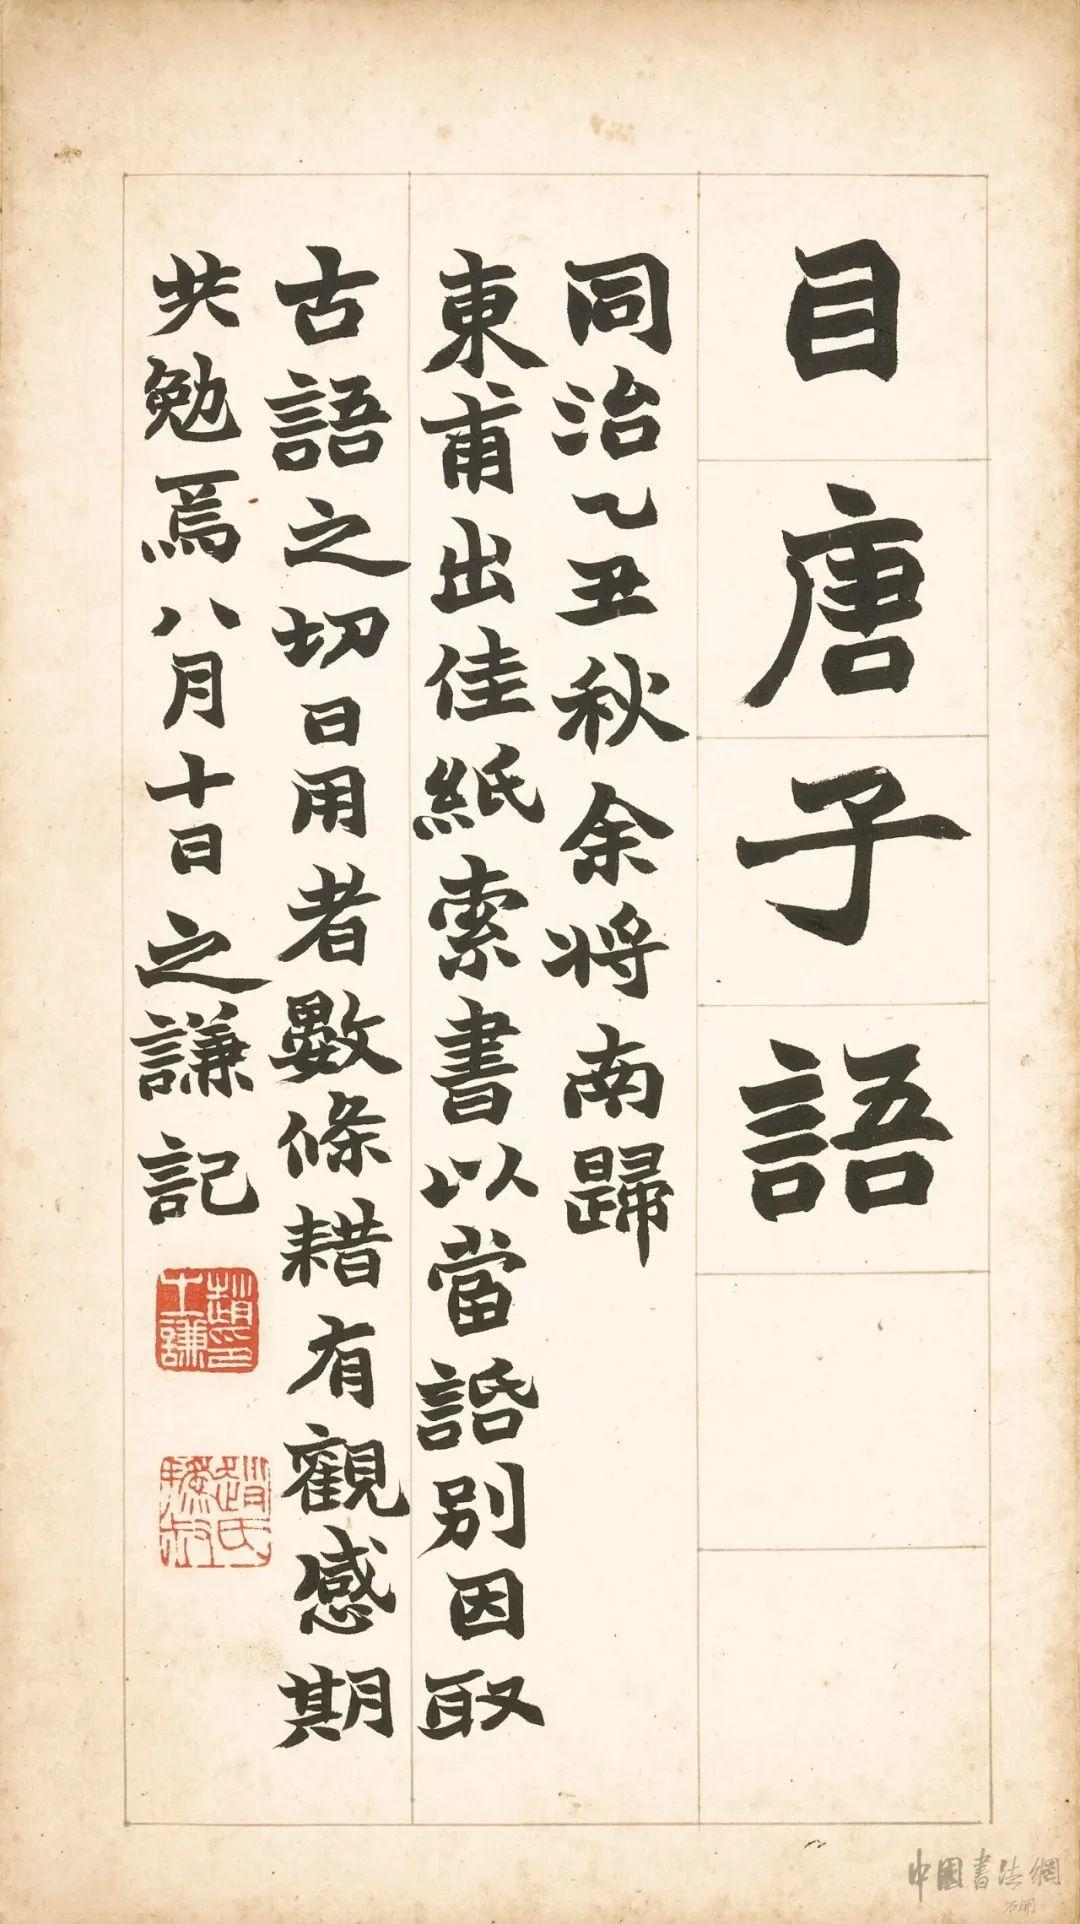 目唐子語
同治乙丑秋余將南歸
東甫出佳紙索書以當諙別因取
古語之切日用者數條耤有觀感期
共勉焉八月十日之謙記
中國書法網